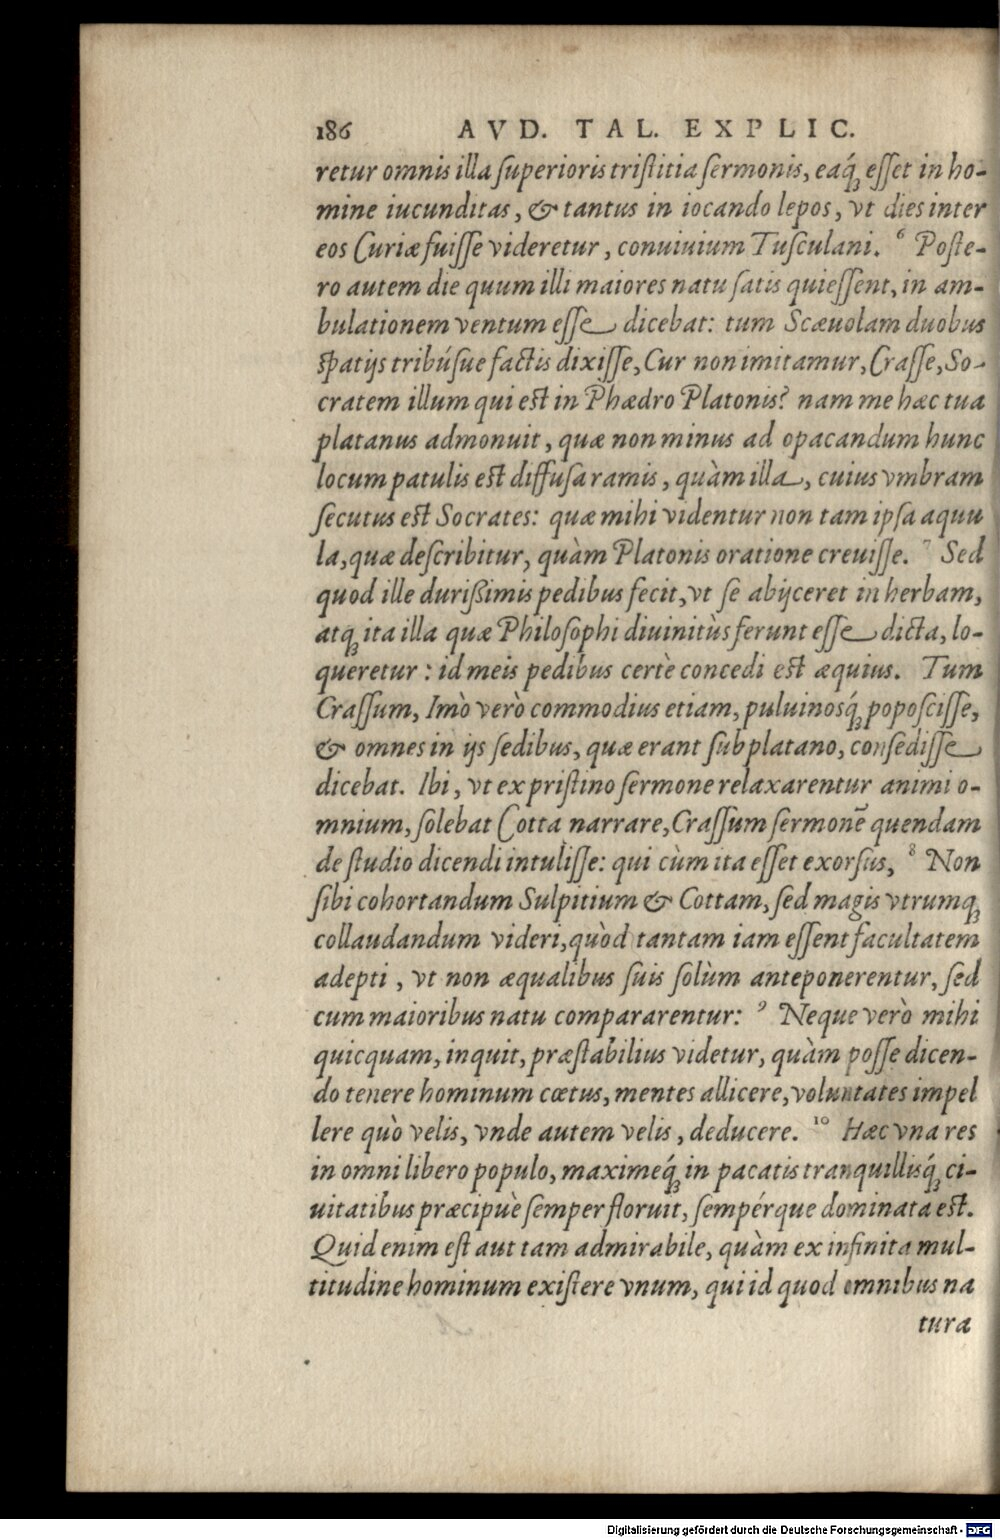 186 AVD. TAL. EXPLIC.
retur omnis illa ſuperioris triſtitia ſermonis, eaq́ꝫ eſſet in ho-
mine iucunditas, & tantus in iocando lepos, vt dies inter
eos Curiæ fuiſſe videretur, conuiuium Tuſculani. ⁶ Poſte-
ro autem die quum illi maiores natu ſatis quieſſent, in am-
bulationem ventum eſſe dicebat: tum Scæuolam duobus
ſpatijs tribúſue factis dixiſſe, Cur non imitamur, Craſſe, So-
cratem illum qui eſt in Phædro Platonis? nam me hæc tua
platanus admonuit, quæ non minus ad opacandum hunc
locum patulis eſt diffuſa ramis, quàm illa, cuius vmbram
ſecutus eſt Socrates: quæ mihi videntur non tam ipſa aquu
la, quæ deſcribitur, quàm Platonis oratione creuiſſe. ⁷ Sed
quod ille durißimis pedibus fecit, vt ſe abijceret in herbam,
atqꝫ ita illa quæ Philoſophi diuinitùs ferunt eſſe dicta, lo-
queretur: id meis pedibus certè concedi eſt æquius. Tum
Craſſum, Imò verò commodius etiam, puluinosq́ꝫ popoſciſſe,
& omnes in ijs ſedibus, quæ erant ſub platano, conſediſſe
dicebat. Ibi, vt ex priſtino ſermone relaxarentur animi o-
mnium, ſolebat Cotta narrare, Craſſum ſermonē quendam
de ſtudio dicendi intuliſſe: qui cùm ita eſſet exorſus, ⁸ Non
ſibi cohortandum Sulpitium & Cottam, ſed magis vtrumqꝫ
collaudandum videri, quòd tantam iam eſſent facultatem
adepti, vt non æqualibus ſuis ſolùm anteponerentur, ſed
cum maioribus natu compararentur: ⁹ Neque verò mihi
quicquam, inquit, præſtabilius videtur, quàm poſſe dicen-
do tenere hominum cœtus, mentes allicere, voluntates impel
lere quò velis, vnde autem velis, deducere. ¹⁰ Hæc vna res
in omni libero populo, maximeq́ꝫ in pacatis tranquillisq́ꝫ ci-
uitatibus præcipuè ſemper floruit, ſempérque dominata eſt.
Quid enim eſt aut tam admirabile, quàm ex infinita mul-
titudine hominum exiſtere vnum, qui id quod omnibus na
tura
Digitalisierung gefördert durch die Deutsche Forschungsgemeinschaft - DFG